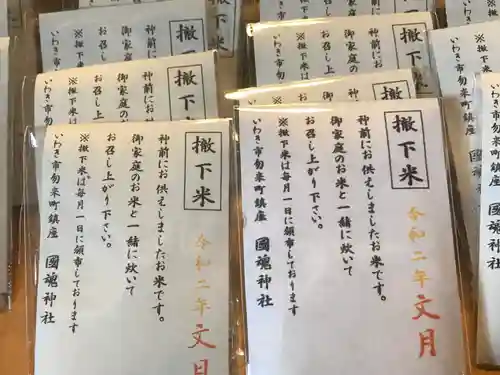 撤下米
令和二年文月
神前にお供えしましたお米です。
御家庭のお米と一緒に炊いて
お召し上がり下さい。
※撤下米は毎月一日に頒布しております
いわき市勿来町鎮座 國魂神社
撤下米
令和二年文月
神前にお供えしましたお米です。
御家庭のお米と一緒に炊いて
お召し上がり下さい。
※撤下米は毎月一日に頒布しております
いわき市勿来町鎮座 國魂神社
撤下
神前にお
御家庭の
お召し上
※撤下
いわき
いわき市勿来町鎮座